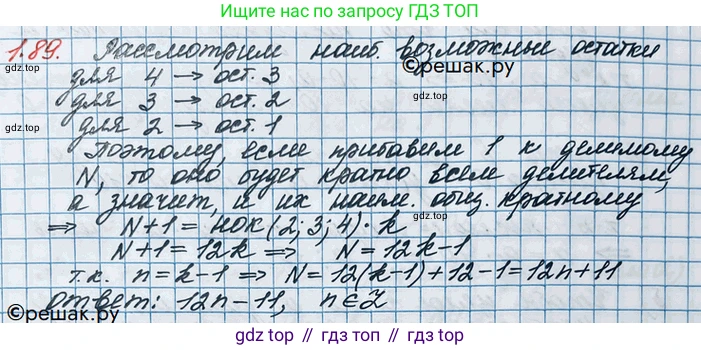 Ищите нас по запросу ГДЗ ТОП
1.89. Рассмотрим наиб. возможные остатки
gdz top
©решак.ру
для 4 → ост. 3
для 3 → ост. 2
для 2 → ост. 1
Поэтому, если прибавим 1 к делимому
N, то оно будет кратно всем делителям,
а значит, и их наим. общ. кратному
⇒ N+1 = НОК(2; 3; 4)·k
N+1 = 12k ⇒ N = 12k-1
т.к. n = k-1 ⇒ N = 12(k-1)+12-1 = 12n+11
ответ: 12n-11, n∈Z
©решак.ру
gdz top // гдз топ // gdz top // гдз топ